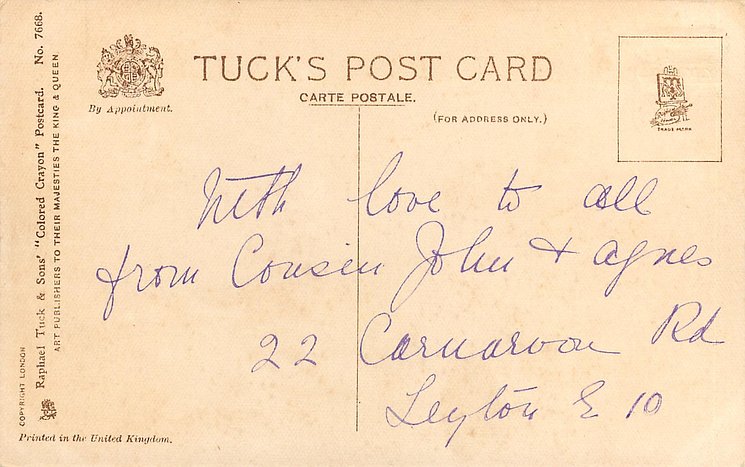 TUCK'S POST CARD
CARTE POSTALE.
(FOR ADDRESS ONLY.)
By Appointment.
TRADE MARK
With love to all
from Cousin John + Agnes
22 Carnarvon Rd
Leyton E 10
COPYRIGHT LONDON
Raphael Tuck & Sons' "Colored Crayon" Postcard. No. 7668.
ART PUBLISHERS TO THEIR MAJESTIES THE KING & QUEEN.
Printed in the United Kingdom.